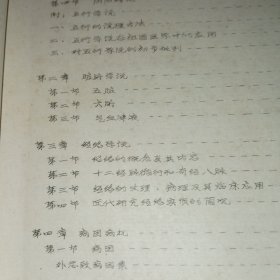 附：五行学说
一、五行的演绎方法
二、五行学说在祖国医学中的应用
三、对五行学说的初步批判
第二章 脏腑学说
第一节 五脏
第二节 六腑
第三节 气血津液
第三章 经络学说
第一节 经络的概念及其内容
第二节 十二经脉循行和奇经八脉
第三节 经络的生理、病理及其临床应用
第四节 近代研究经络实质的简况
第四章 病因病机
第一节 病因
外感致病因素